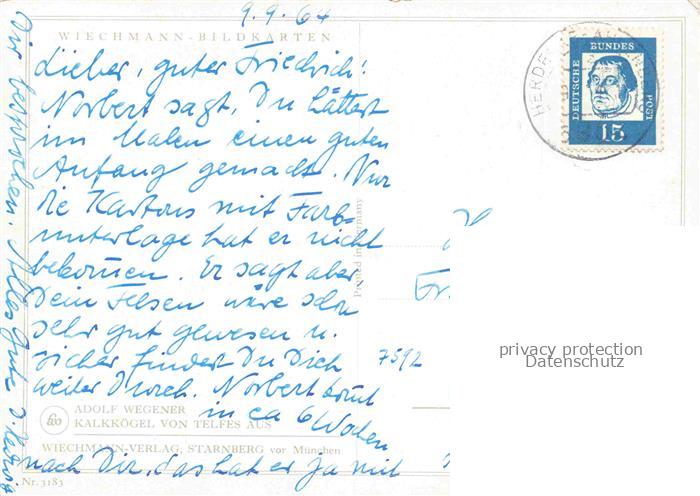 9.9.64
WIECHMANN-BILDKARTEN
Lieber, guter Friedrich!
Norbert sagt, Du hättest
im Malen einen guten
Anfang gemacht. Nur
die Kartons mit Farb-
unterlage hat er nicht
bekommen. Er sagt aber
Dein Felsen wäre schon
sehr gut gewesen u.
sicher findest Du Dich
weiter durch. Norbert kommt
in ca 6 Wochen
nach Dir, das hat er ja mit
Dir besprochen. Alles Gute D. Hedwig
ADOLF WEGENER
KALKKÖGEL VON TELFES AUS
WIECHMANN-VERLAG, STARNBERG vor München
Nr. 3183
Printed in Germany
DEUTSCHE BUNDES POST
15
H
Fr
7592
privacy protection
Datenschutz